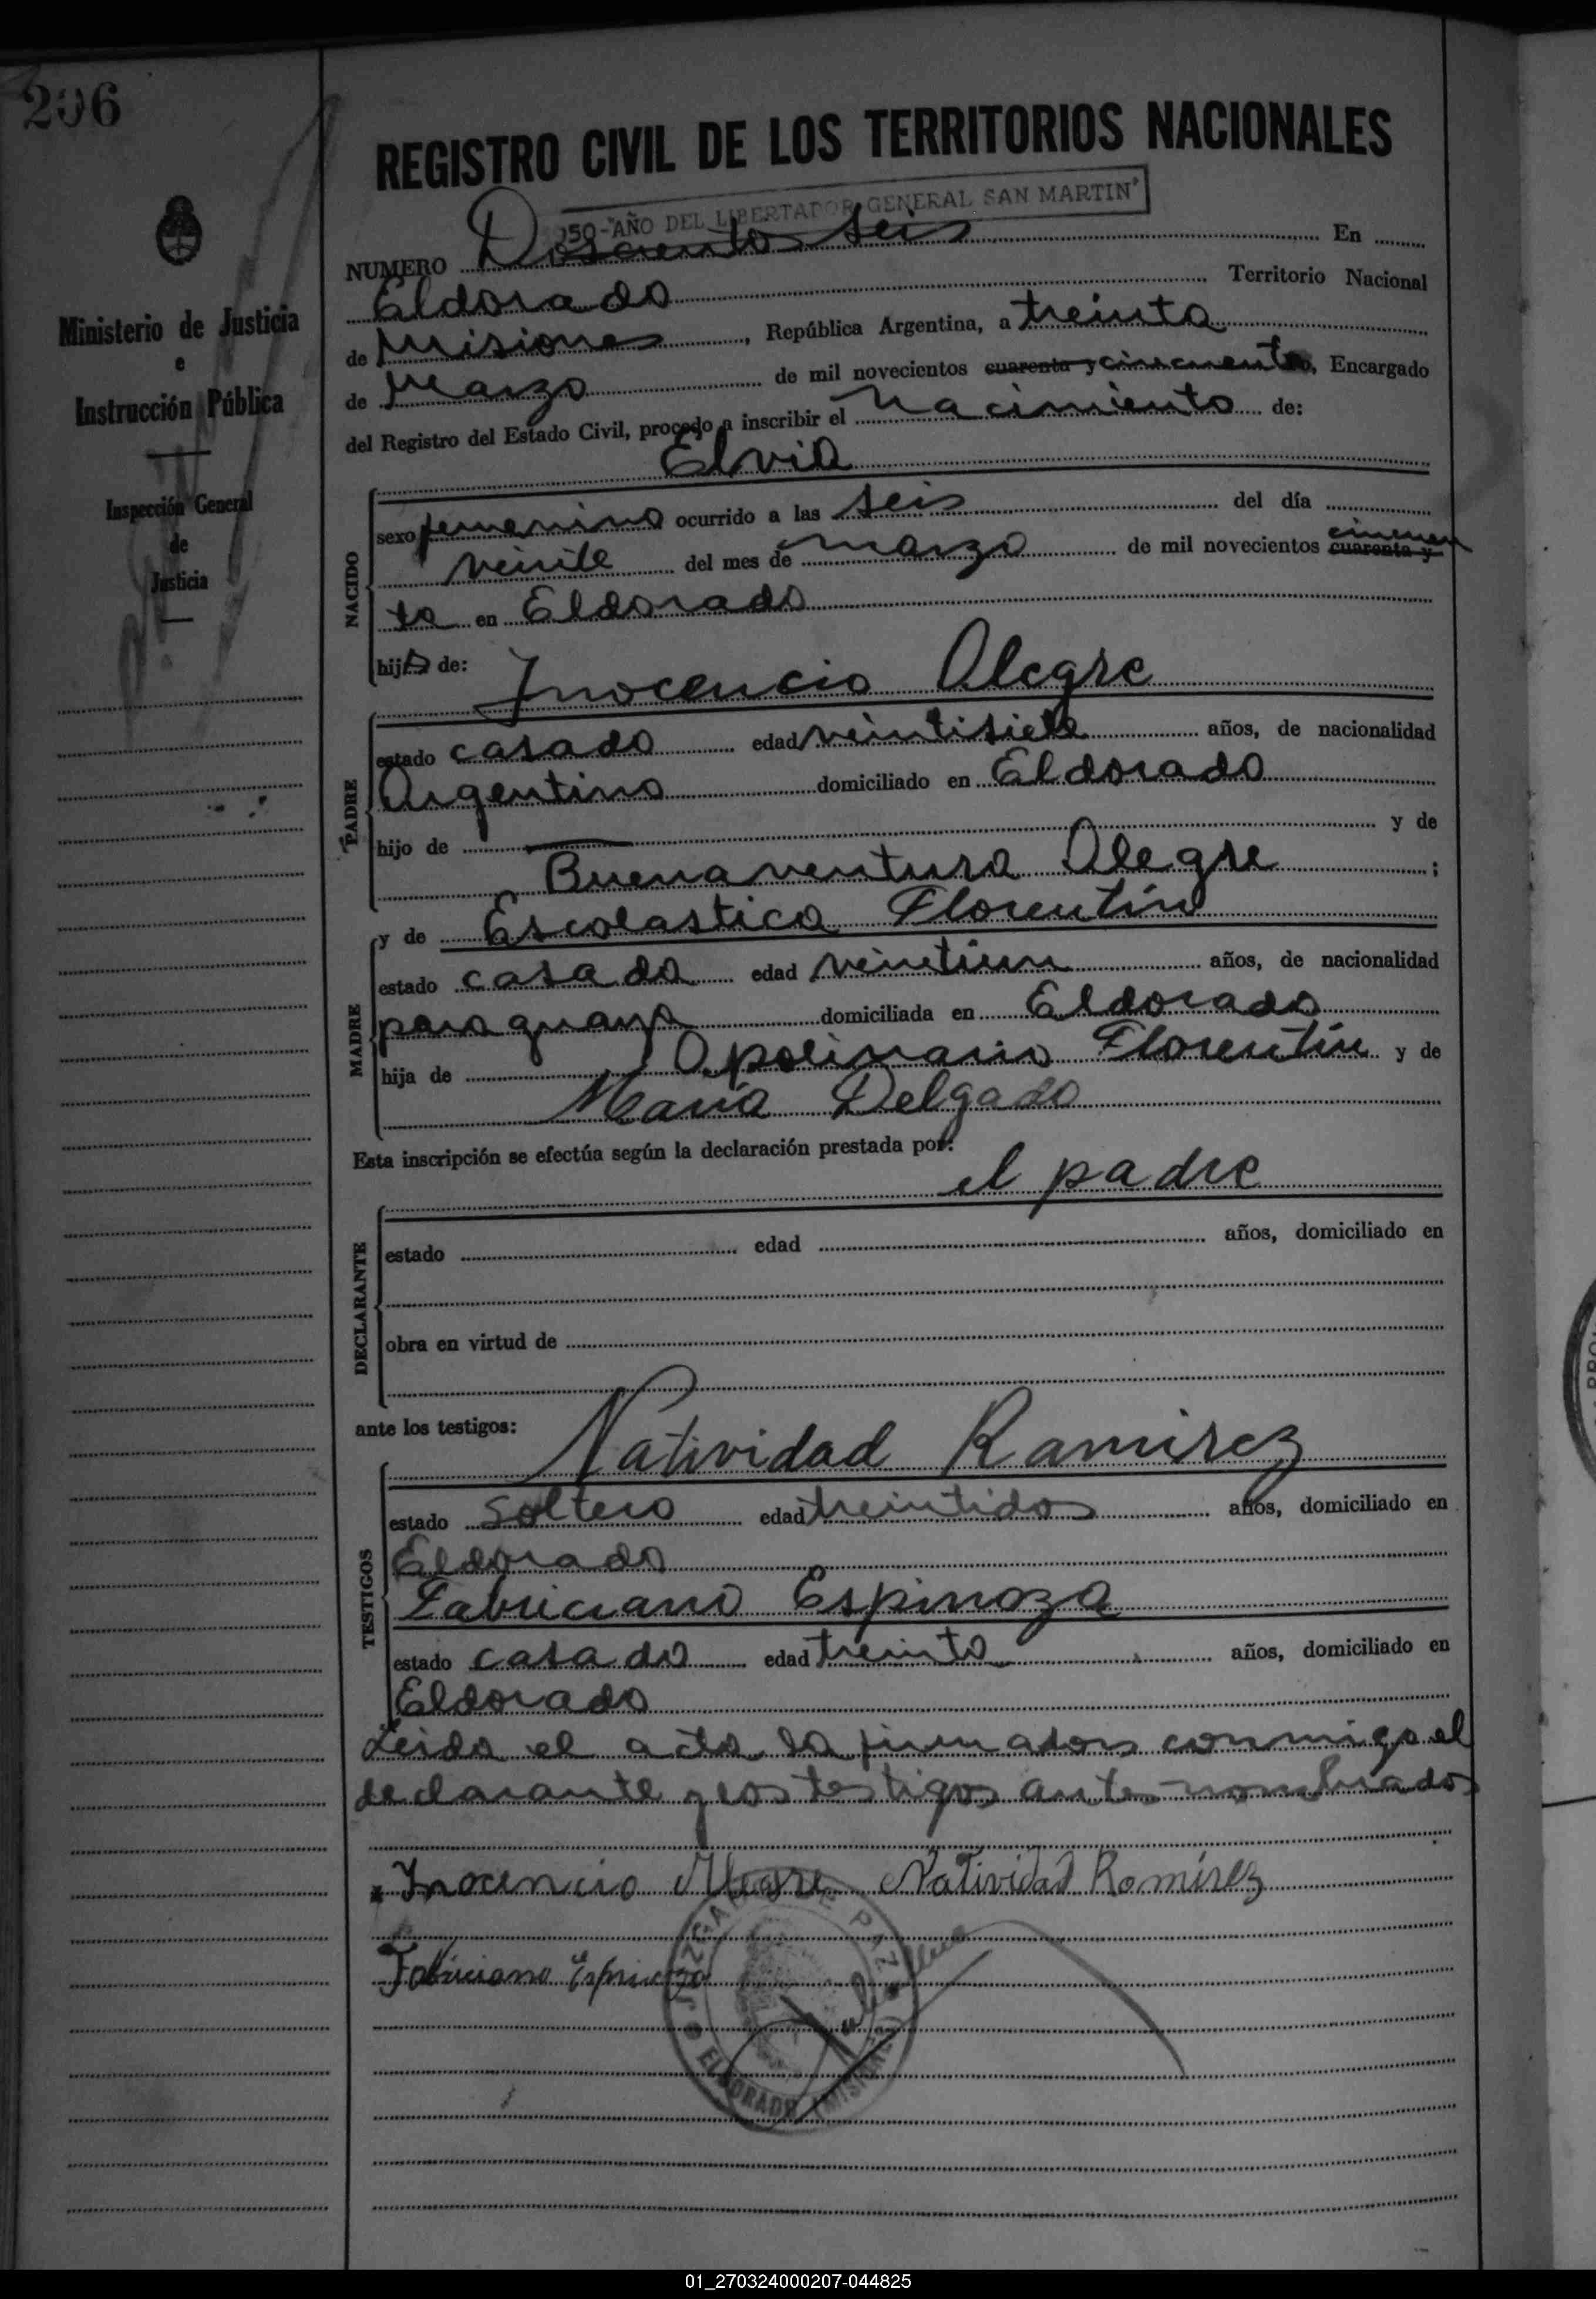 206
Ministerio de Justicia
e
Instrucción Pública
Inspección General
de
Justicia
REGISTRO CIVIL DE LOS TERRITORIOS NACIONALES
50-"AÑO DEL LIBERTADOR GENERAL SAN MARTIN"
NUMERO Doscientos seis En
Eldorado Territorio Nacional
de Misiones, República Argentina, a treinta
de Marzo de mil novecientos cuarenta y cincuenta, Encargado
del Registro del Estado Civil, procedo a inscribir el nacimiento de:
Elvia
NACIDO
sexo femenino ocurrido a las seis del día
veinte del mes de marzo de mil novecientos cuarenta y cincuen
ta en Eldorado
hija de:
Inocencio Alegre
PADRE
estado casado edad veintisiete años, de nacionalidad
Argentino domiciliado en Eldorado
hijo de y de
Buenaventura Alegre ;
y de Escolastica Florentín
MADRE
estado casada edad veintiun años, de nacionalidad
paraguaya domiciliada en Eldorado
hija de Apolinario Florentín y de
María Delgado
Esta inscripción se efectúa según la declaración prestada por:
el padre
DECLARANTE
estado edad años, domiciliado en
obra en virtud de
ante los testigos:
Natividad Ramirez
TESTIGOS
estado soltero edad treintidos años, domiciliado en
Eldorado
Fabriciano Espinoza
estado casado edad treinta años, domiciliado en
Eldorado
Leida el acta la firmaron conmigo el
declarante y los testigos antes nombrados
Inocencio Alegre Natividad Ramírez
Fabriciano Espinoza
JUZGADO DE PAZ
ELDORADO (MISIONES)
01_270324000207-044825